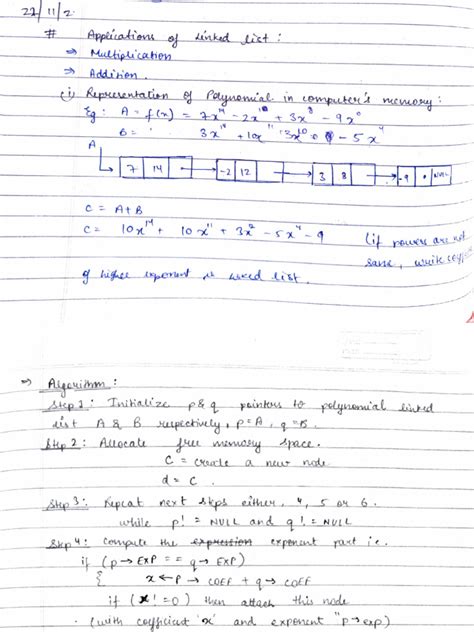 22/11/2
# Applications of Linked List :
⇒ Multiplication
⇒ Addition.
(i) Representation of Polynomial in computer's memory :
Eg: A = f(x) = 7x¹⁴ - 2x¹⁰ + 3x⁸ - 9x⁰
B = 3x¹⁴ + 10x¹¹ - 5x⁴
A
7 14 -2 12 3 8 -9 0 NULL
C = A+B
C = 10x¹⁴ + 10x¹¹ + 3x² - 5x⁴ - 9 (if powers are not
same, write
of higher exponent is linked list.
⇒ Algorithm :
Step 1 : Initialize p & q pointers to polynomial linked
list A & B respectively, p=A, q=B.
Step 2 : Allocate free memory space.
C = create a new node
d = C.
Step 3 : Repeat next steps either, 4, 5 or 6.
while p! = NULL and q! = NULL
Step 4 : Compute the expression exponent part i.e.
if (p → EXP = = q → EXP)
{ x ← P → COEF + q → COEF
if (x! = 0) then attach this node
(with coefficient 'x' and exponent "p → exp)